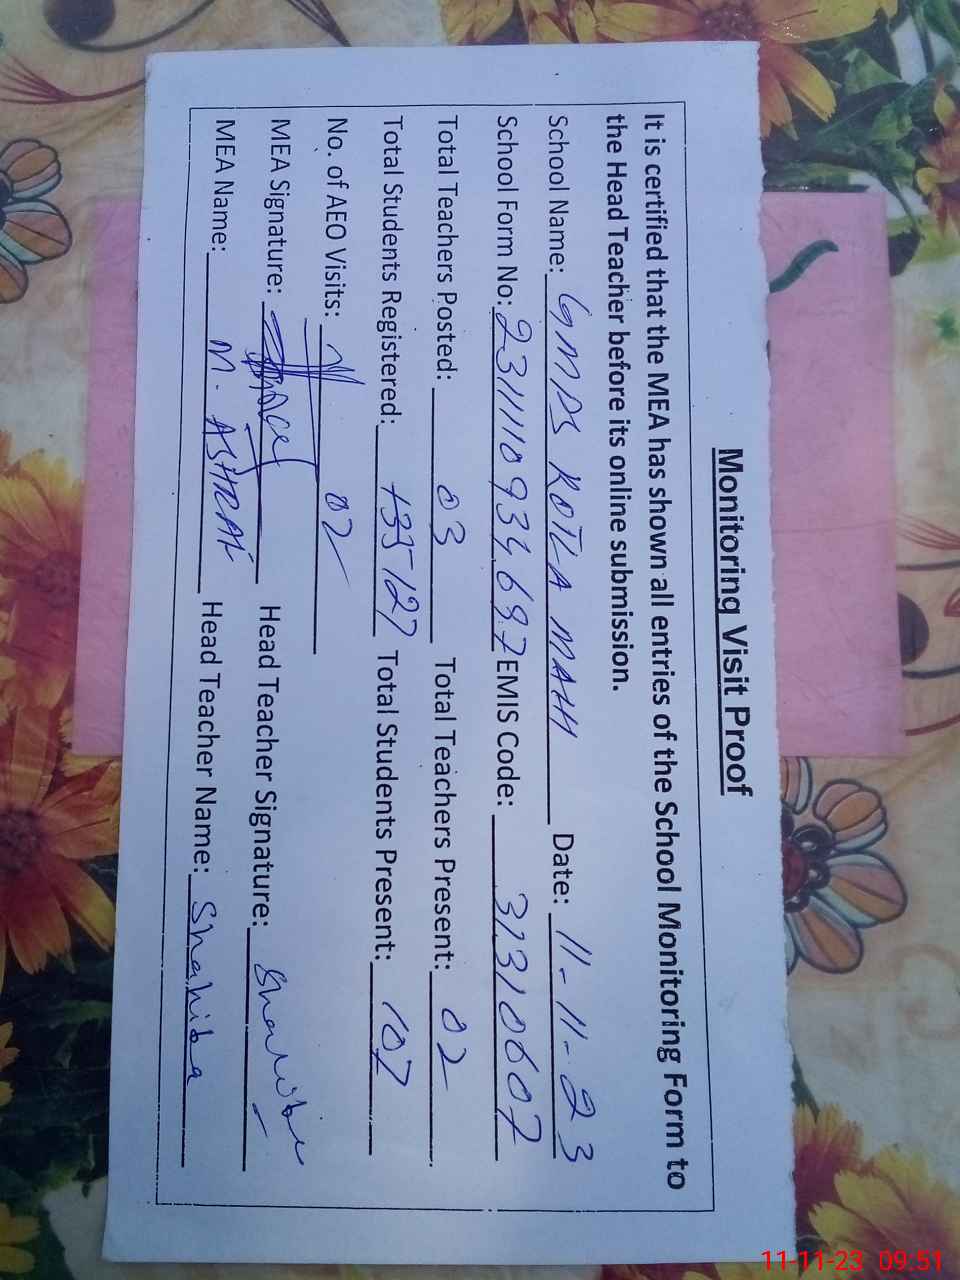 Monitoring Visit Proof
It is certified that the MEA has shown all entries of the School Monitoring Form to
the Head Teacher before its online submission.
School Name: GMPS KOTLA MAHH Date: 11-11-23
School Form No: 23111109346 EMIS Code: 31310607
Total Teachers Posted: 03 Total Teachers Present: 02
Total Students Registered: 127 Total Students Present: 107
No. of AEO Visits: 02
MEA Signature: Head Teacher Signature:
MEA Name: M. ASHRAF Head Teacher Name: Shahiba
11-11-23 09:51